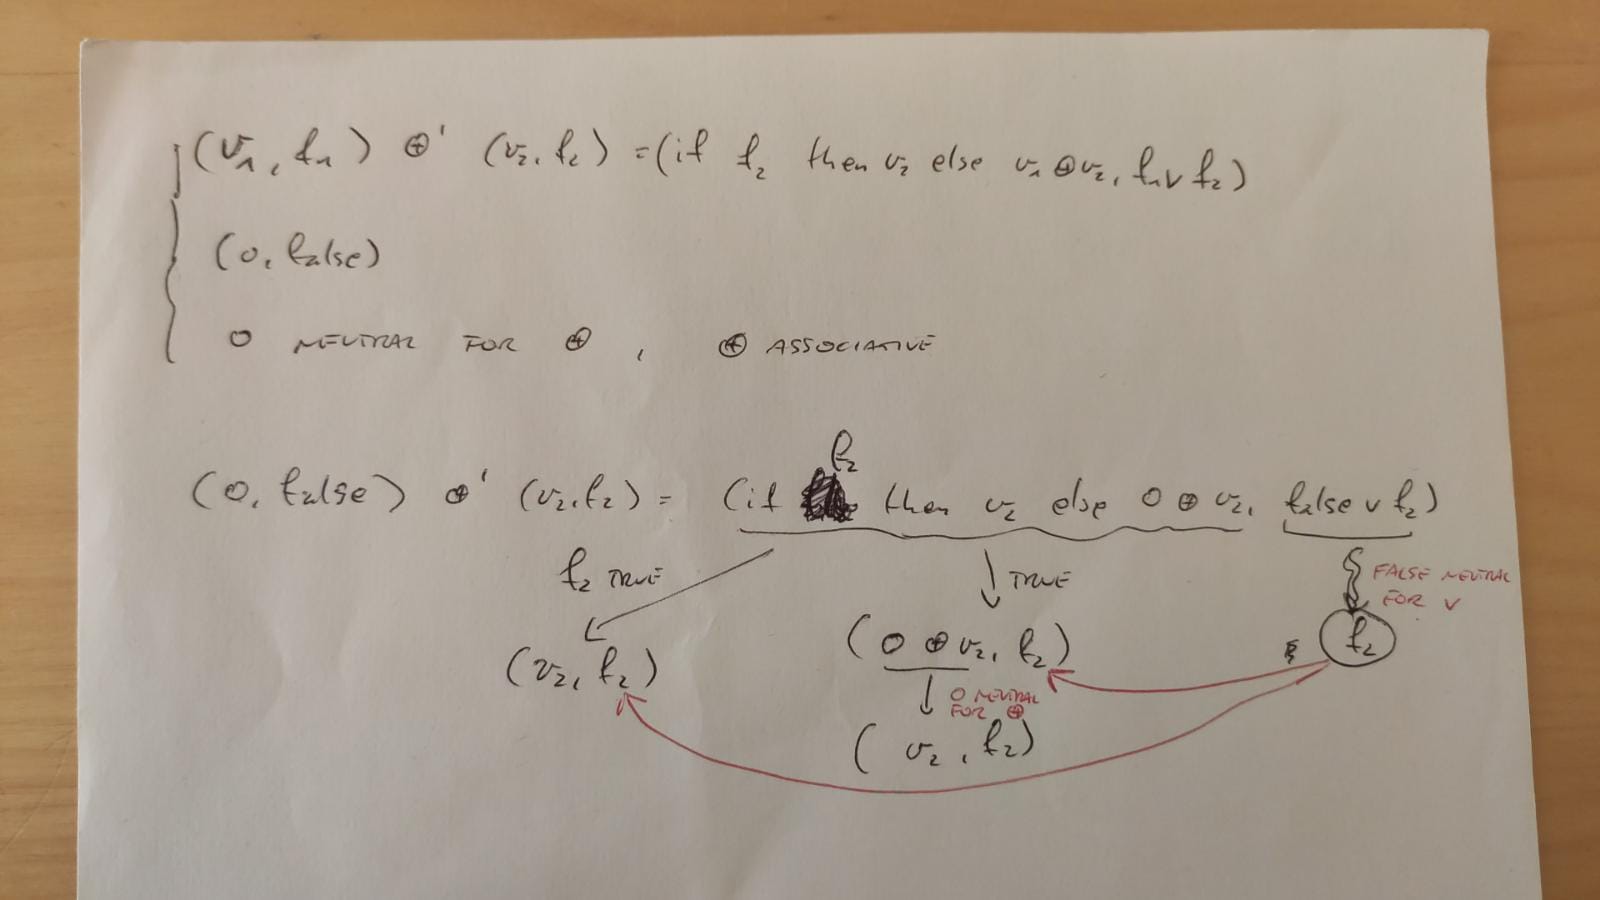 (v₁, f₁) ⊕' (v₂, f₂) = (if f₂ then v₂ else v₁ ⊕ v₂, f₁ ∨ f₂)
(0, false)
0 NEUTRAL FOR ⊕ , ⊕ ASSOCIATIVE
f₂
(0, false) ⊕' (v₂, f₂) = (if then v₂ else 0 ⊕ v₂, false ∨ f₂)
f₂ TRUE
TRUE
FALSE NEUTRAL
FOR ∨
(v₂, f₂)
(0 ⊕ v₂, f₂)
f₂
0 NEUTRAL
FOR ⊕
(v₂, f₂)